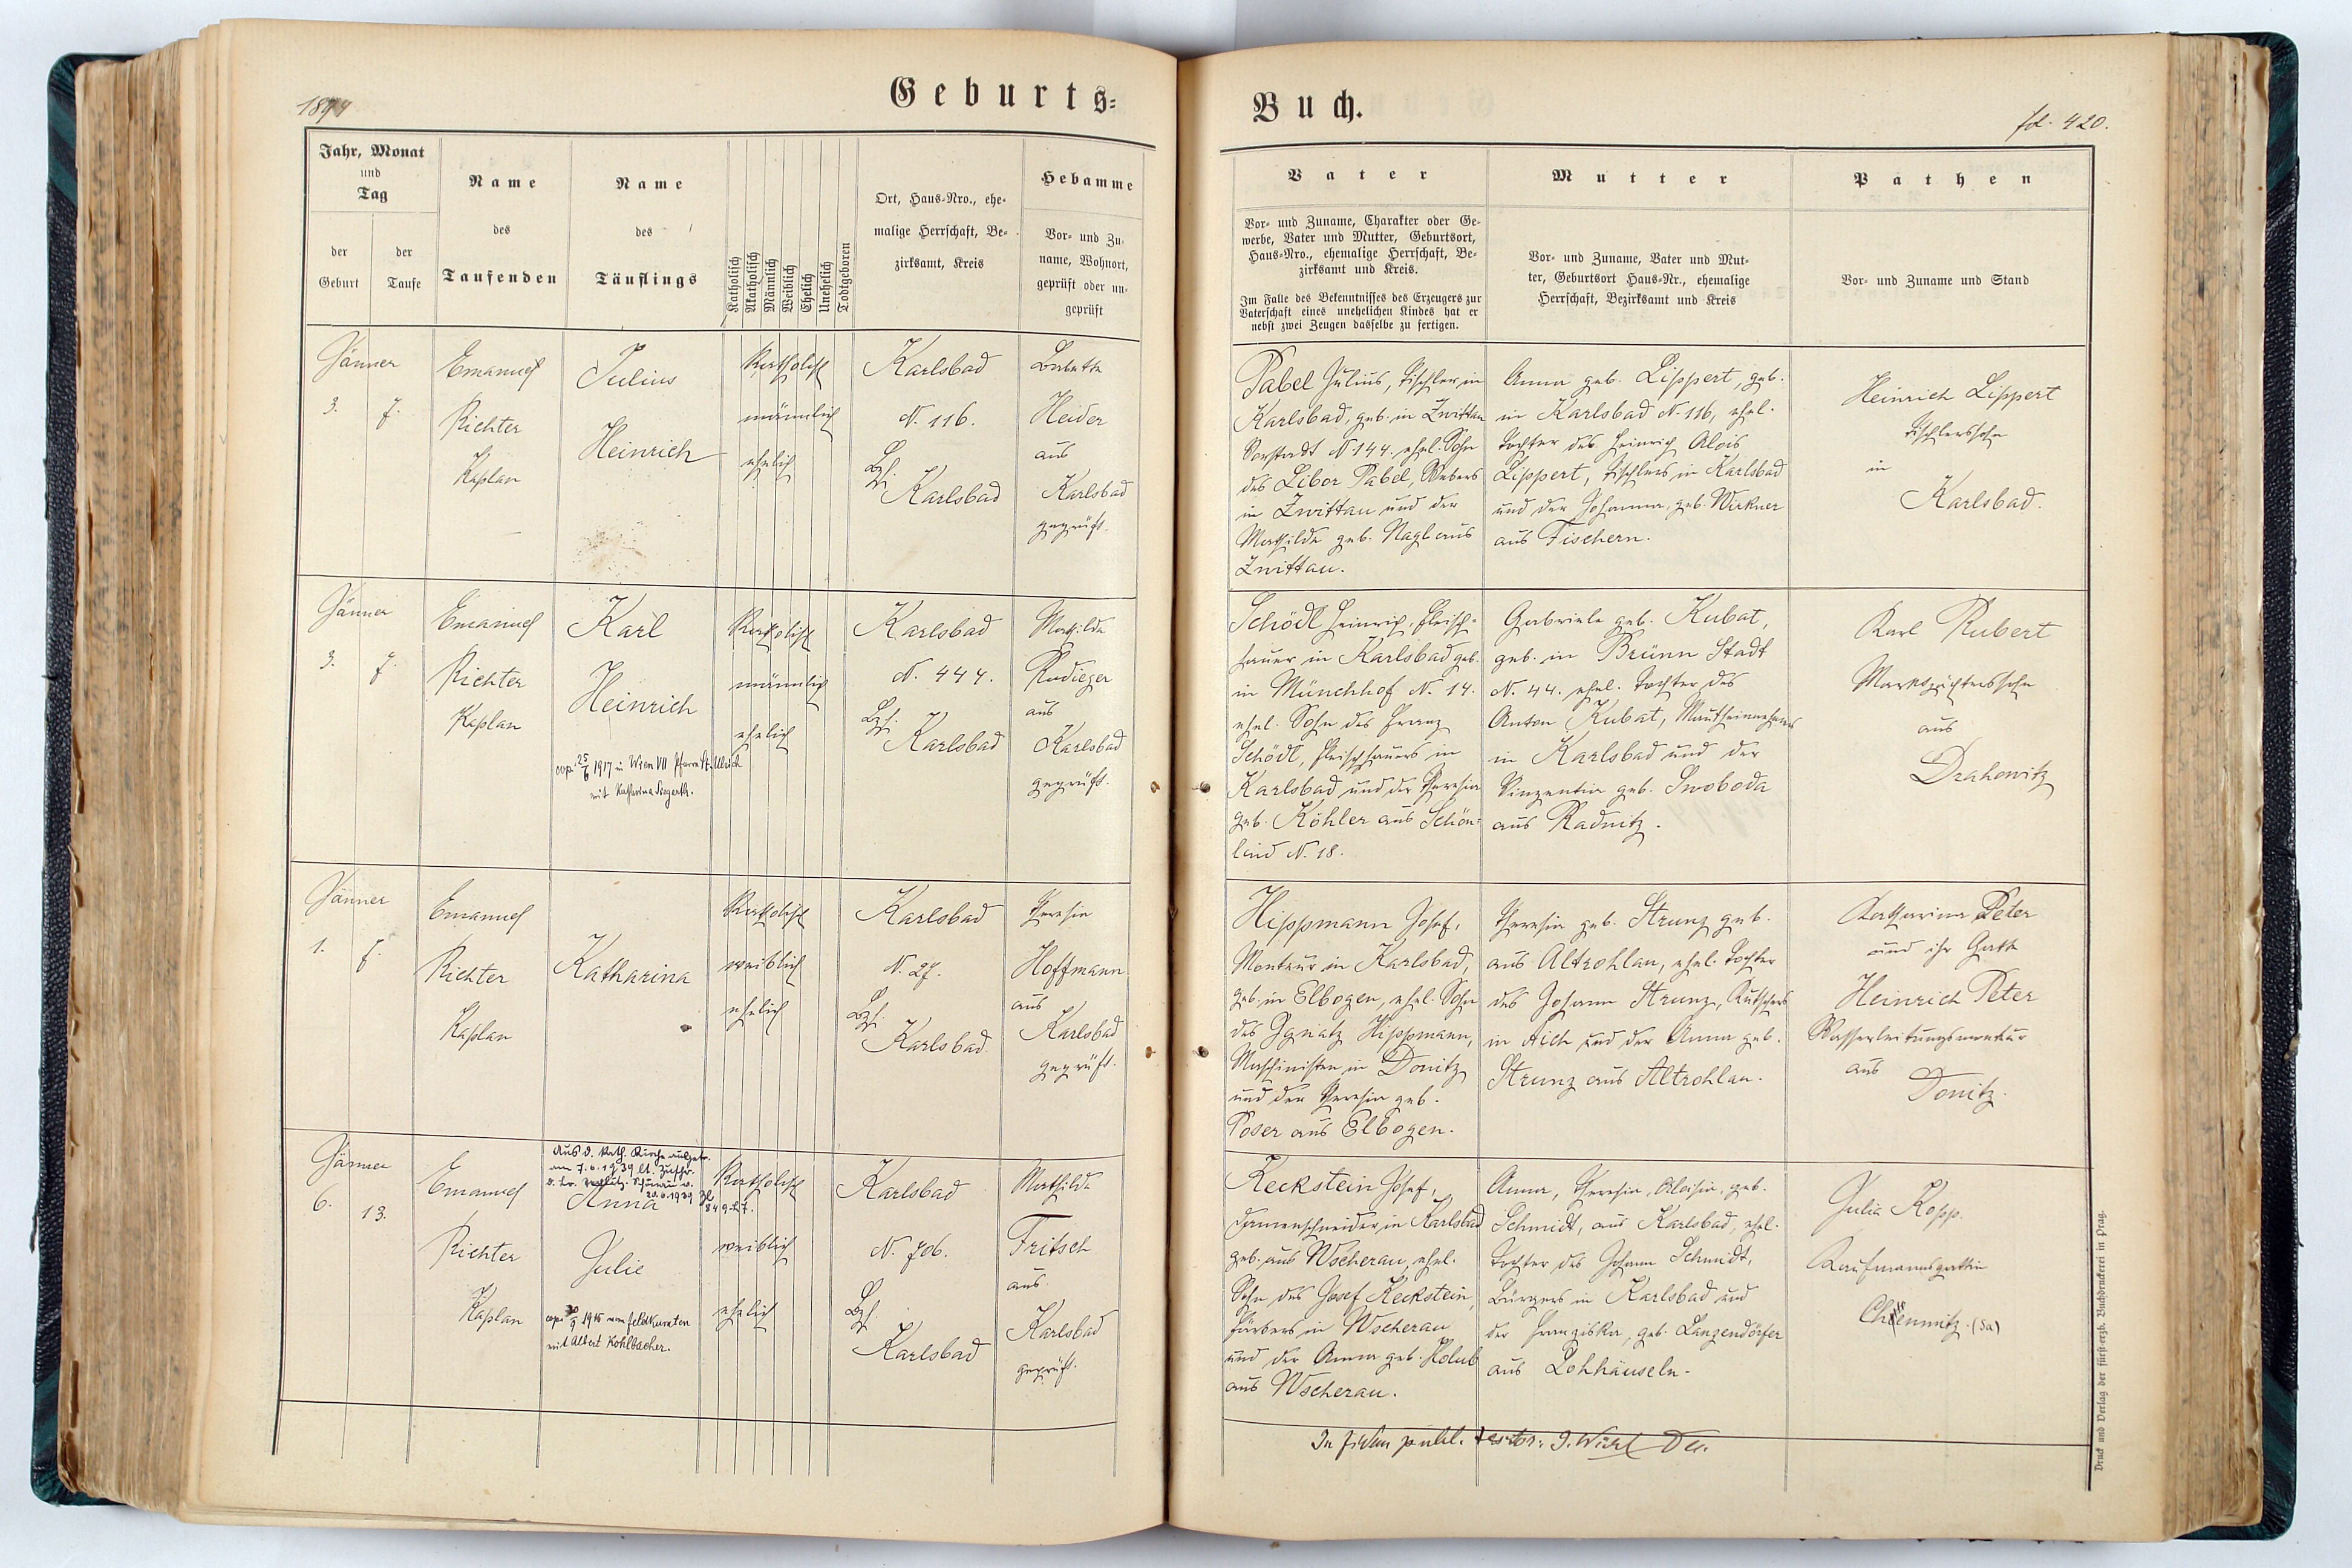 1894
Geburts=
Jahr, Monat
und
Tag
der
Geburt
der
Taufe
Name
des
Taufenden
Name
des
Täuflings
Katholisch
Akatholisch
Männlich
Weiblich
Ehelich
Unehelich
Todtgeboren
Ort, Haus-Nro., ehe-
malige Herrschaft, Be-
zirksamt, Kreis
Hebamme
Vor- und Zu-
name, Wohnort,
geprüft oder un-
geprüft
Jänner
3. 7.
Emanuel
Richter
Kaplan
Julius
Heinrich
Katholisch
männlich
ehelich
Karlsbad
N. 116.
Bzh.
Karlsbad
Babette
Heider
aus
Karlsbad
geprüft.
Jänner
3. 7.
Emanuel
Richter
Kaplan
Karl
Heinrich
cop. 25/6 1917 in Wien VII Pfarre St. Ulrich
mit Katharina Siegerth.
Katholisch
männlich
ehelich
Karlsbad
N. 444.
Bzh.
Karlsbad
Mathilde
Rudieger
aus
Karlsbad
geprüft.
Jänner
1. 7.
Emanuel
Richter
Kaplan
Katharina
Katholisch
weiblich
ehelich
Karlsbad
N. 27.
Bzh.
Karlsbad.
Theresia
Hoffmann
aus
Karlsbad
geprüft.
Jänner
6. 13.
Emanuel
Richter
Kaplan
Aus d. kath. Kirche ausgetr.
am 7.6.1939 lt. Zuschr.
20.6.1939
Anna
Julie
1915 vom Feldkuraten
mit Albert Kohlbacher.
Katholisch
weiblich
ehelich
Karlsbad
N. 706.
Bzh.
Karlsbad
Mathilde
Fritsch
aus
Karlsbad
geprüft.
Buch.
fol. 420.
Vater
Vor- und Zuname, Charakter oder Ge-
werbe, Vater und Mutter, Geburtsort,
Haus-Nro., ehemalige Herrschaft, Be-
zirksamt und Kreis.
Im Falle des Bekenntnisses des Erzeugers zur
Vaterschaft eines unehelichen Kindes hat er
nebst zwei Zeugen dasselbe zu fertigen.
Mutter
Vor- und Zuname, Vater und Mut-
ter, Geburtsort Haus-Nr., ehemalige
Herrschaft, Bezirksamt und Kreis
Pathen
Vor- und Zuname und Stand
Pabel Julius, Tischler in
Karlsbad, geb. in Zwittau
Vorstadt N 144. ehel. Sohn
des Libor Pabel, Webers
in Zwittau und der
Mathilde geb. Nagl aus
Zwittau.
Anna geb. Lippert, geb.
in Karlsbad N. 116, ehel.
Tochter des Heinrich Alois
Lippert, Tischlers in Karlsbad
und der Johanna, geb. Wirkner
aus Fischern.
Heinrich Lippert
Tischlerssohn
in
Karlsbad.
Schödl Heinrich, Fleisch-
hauer in Karlsbad geb.
in Münchhof N. 14.
ehel. Sohn des Franz
Schödl, Fleischhauers in
Karlsbad und der Theresia
geb. Köhler aus Schön-
lind N. 18.
Gabriele geb. Kubat,
geb. in Brünn Stadt
N. 44. ehel. Tochter des
Anton Kubat, Mautheinnehmers
in Karlsbad und der
Vinzentia geb. Swoboda
aus Radnitz.
Karl Rubert
Marktrichterssohn
aus
Drahowitz
Hippmann Josef,
Monteur in Karlsbad,
geb. in Elbogen, ehel. Sohn
des Ignatz Hippmann,
Maschinisten in Donitz
und der Theresia geb.
Poser aus Elbogen.
Theresia geb. Strunz geb.
aus Altrohlau, ehel. Tochter
des Johann Strunz, Kutschers
in Aich und der Anna geb.
Strunz aus Altrohlau.
Katharina Peter
und ihr Gatte
Heinrich Peter
Wasserleitungsmonteur
aus
Donitz.
Keckstein Josef,
Damenschneider in Karlsbad
geb. aus Wscherau, ehel.
Sohn des Josef Keckstein,
Färbers in Wscherau
und der Anna geb. Holub
aus Wscherau.
Anna, Theresia, Aloisia, geb.
Schmidt, aus Karlsbad, ehel.
Tochter des Johann Schmidt,
Bürgers in Karlsbad und
der Franziska, geb. Langendörfer
aus Lohhäuseln.
Julie Kopp.
Kaufmannsgattin
Chemnitz. (Sa)
Druck und Verlag der fürst-erzb. Buchdruckerei in Prag.